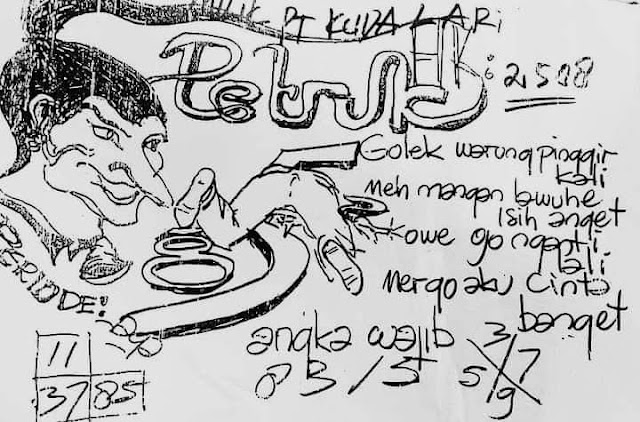 PT KUDA LARi
Petruk HK: 2508
Golek warung pinggir
kali
Meh mangan awuhe
Isih anget
Kowe go nganti
lali
Mergo aku Cinta
banget
PERIODE:
11
37 85
angka wajib 3/7
8 3/5 5 9